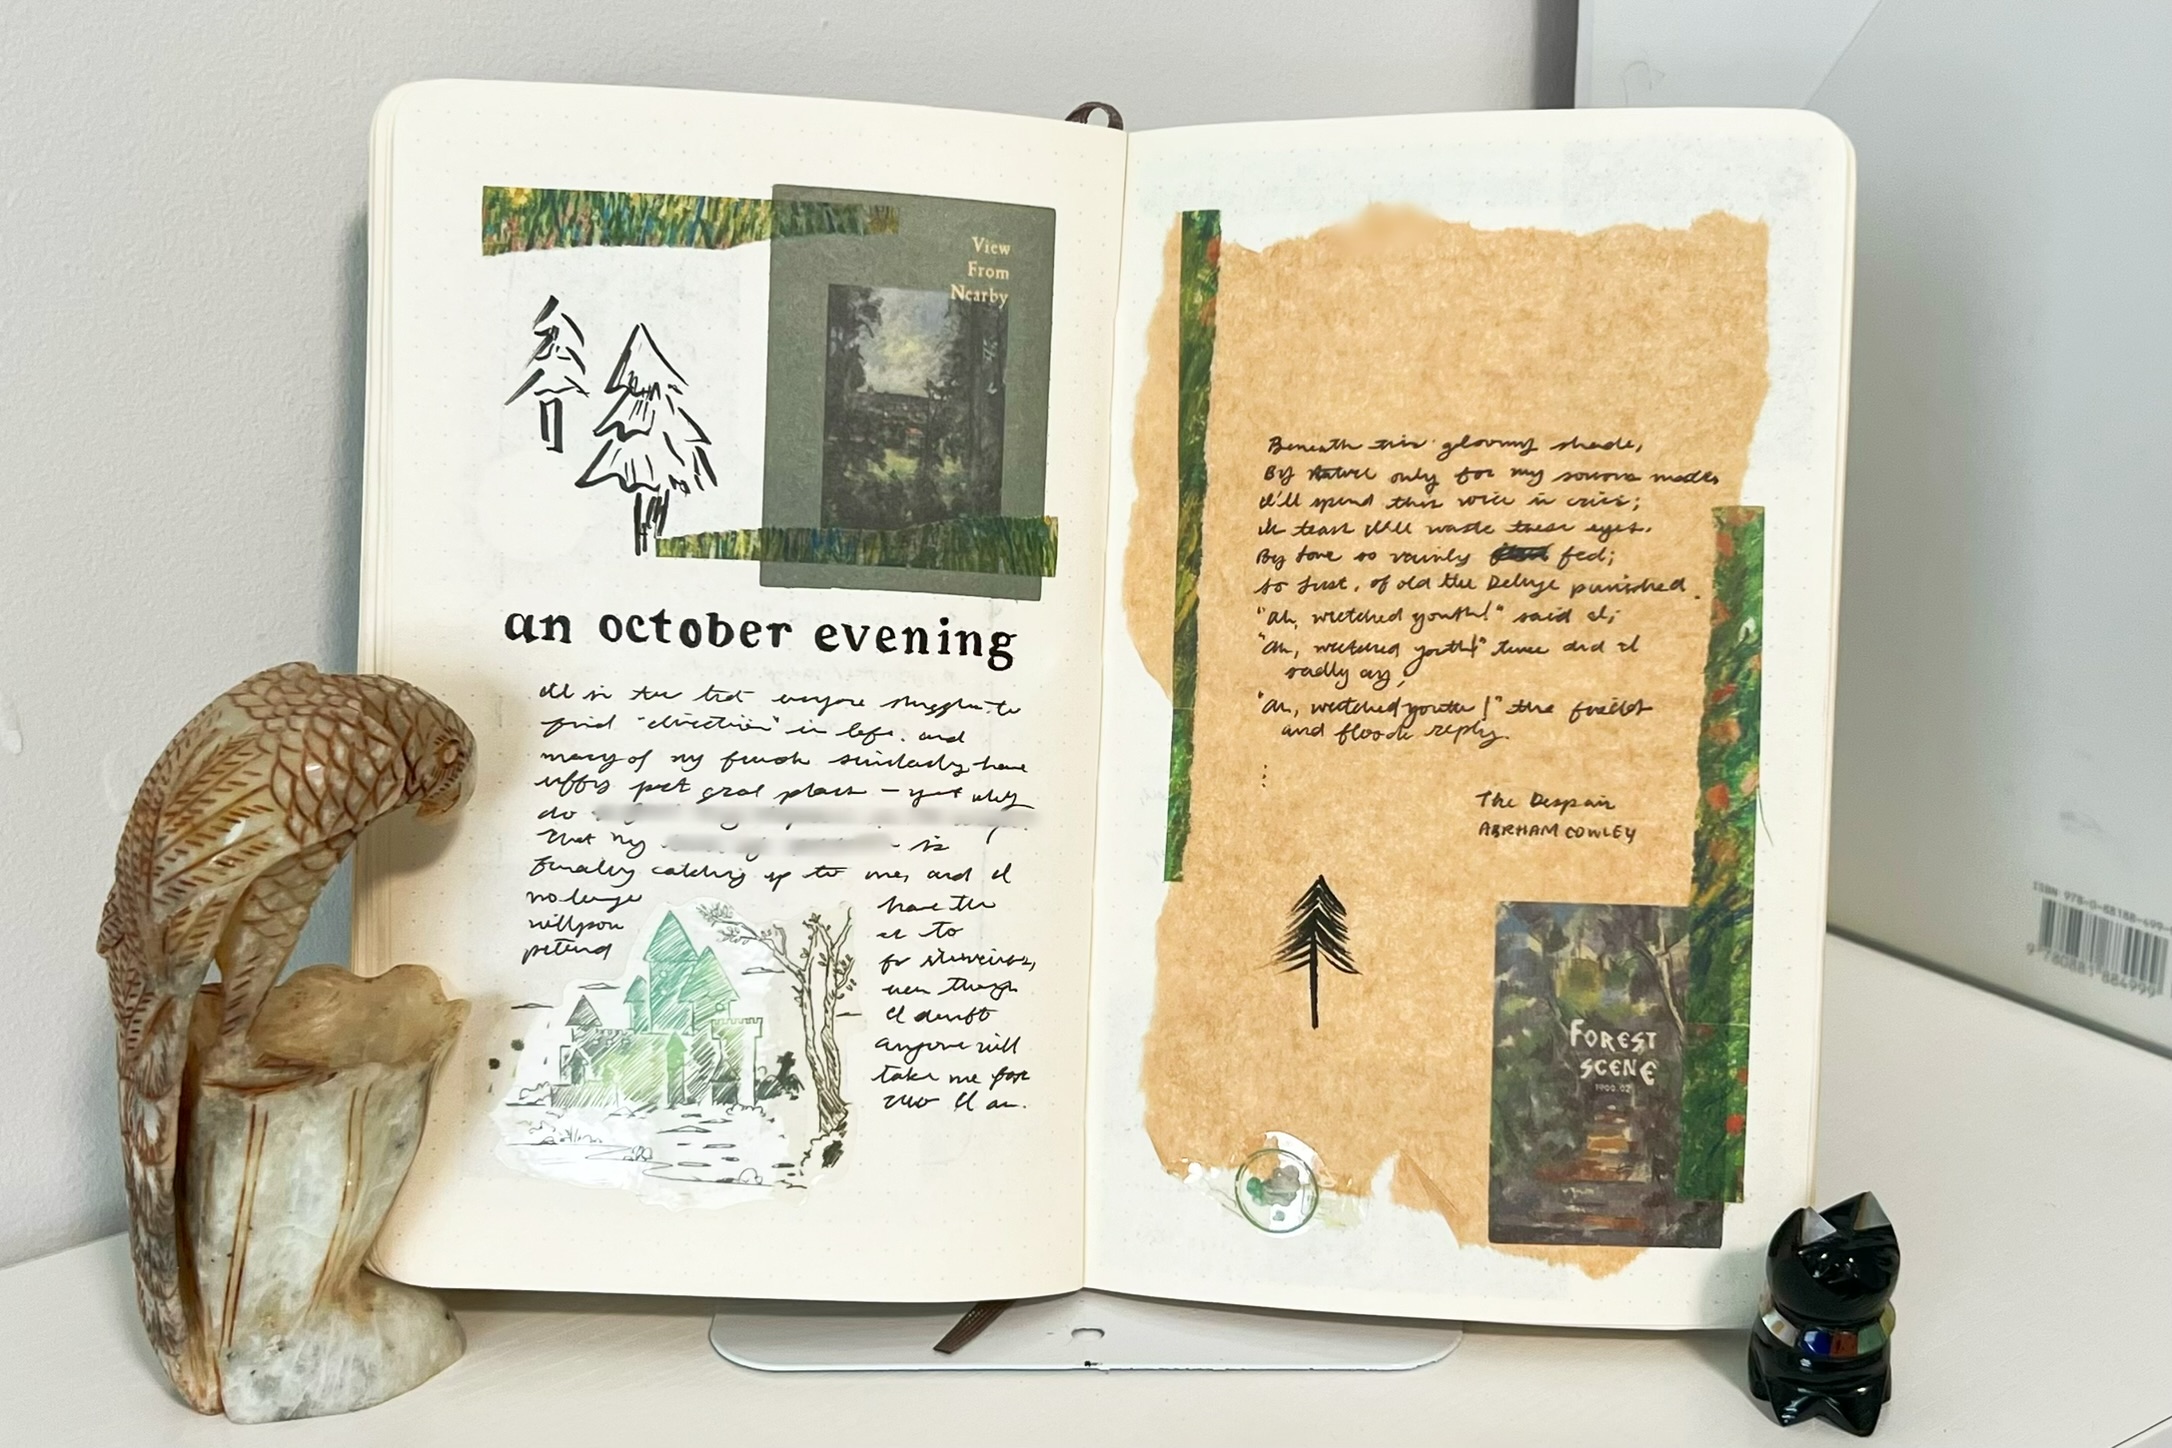 View
From
Nearby
an october evening
find "direction" in life. and
many of my friends similarly have
do
that my is
finally catching up to me, and I
no longer have the
willpower to
pretend
even though
I doubt
anyone will
take me for
who I am.
Beneath this gloomy shade,
By Nature only for my sorrows made,
I'll spend this voice in cries;
In tears I'll waste these eyes.
By Love so vainly fed;
So Lust, of old the Deluge punished.
"Ah, wretched youth!" said I;
"Ah, wretched youth!" twice did I
sadly cry,
"Ah, wretched youth!" the fields
and floods reply.
⋮
The Despair
ABRHAM COWLEY
FOREST
SCENE
1900.02
ISBN 978-0-88188-499-
9 780881 884999